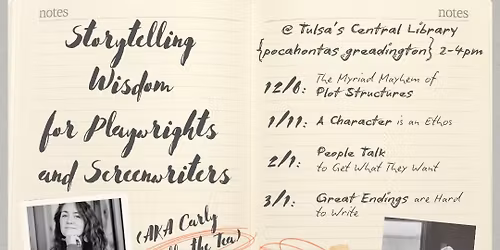 notes
Storytelling
Wisdom
for Playwrights
and Screenwriters
(AKA Carly
the Tea)
notes
@ Tulsa's Central Library
{pocahontas greadington} 2-4pm
12/6: The Myriad Mayhem of
Plot Structures
1/11: A Character is an Ethos
2/1: People Talk
to Get What They Want
3/1: Great Endings are Hard
to Write